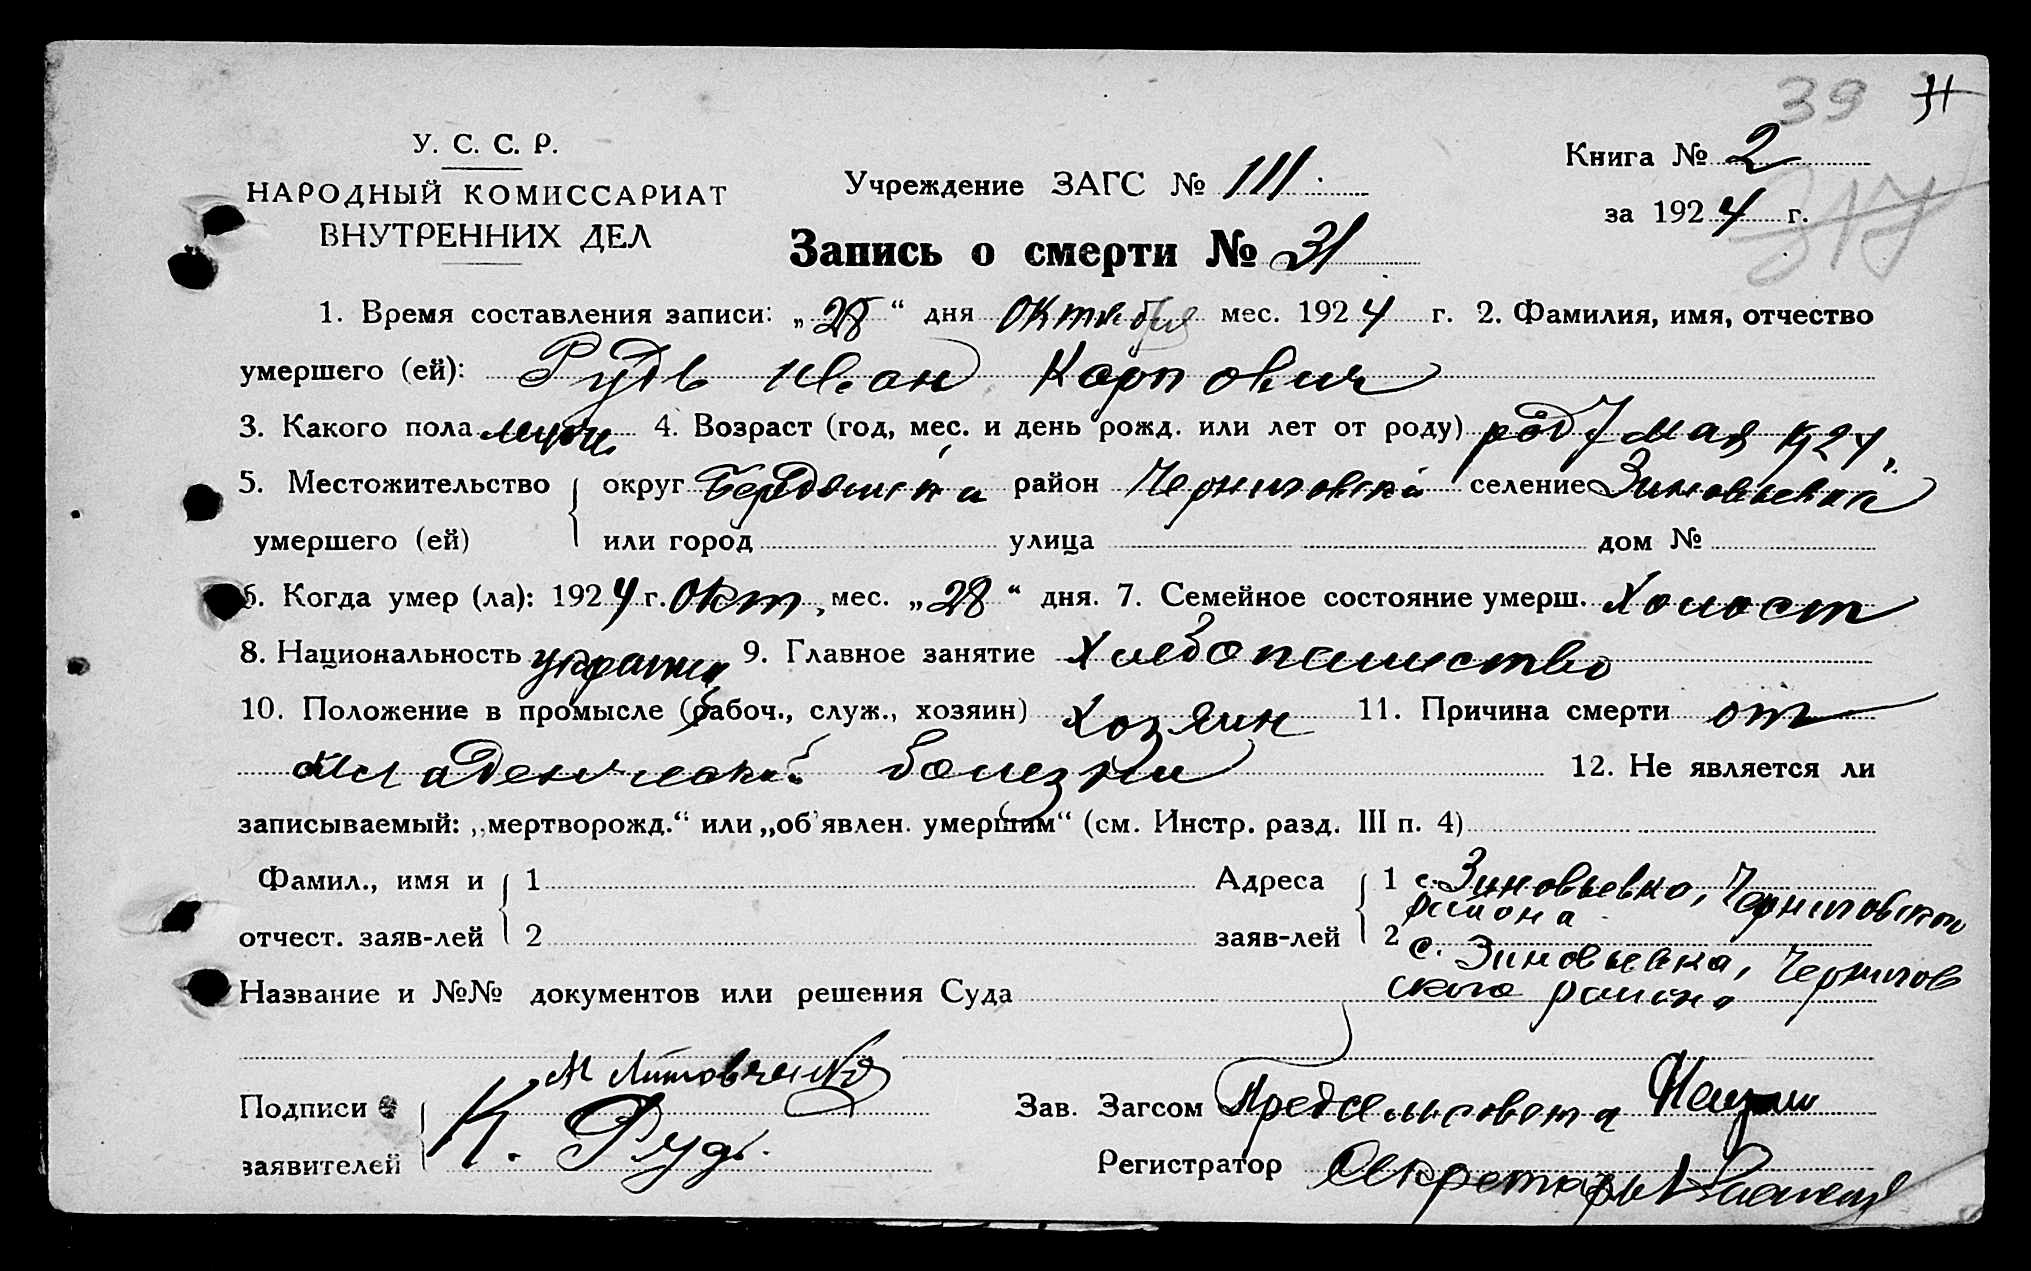 39 31
У. С. С. Р.
НАРОДНЫЙ КОМИССАРИАТ
ВНУТРЕННИХ ДЕЛ
Учреждение ЗАГС № 111
Книга № 2
за 1924 г.
317
Запись о смерти № 31
1. Время составления записи: „28“ дня октября мес. 1924 г. 2. Фамилия, имя, отчество
умершего (ей): Рудь Иван Карпович
3. Какого пола мужч. 4. Возраст (год, мес. и день рожд. или лет от роду) род 7 мая 1924.
5. Местожительство округ район Черниговский селение Зиновьевка
умершего (ей) или город улица дом №
6. Когда умер (ла): 1924 г. Окт, мес. „28“ дня. 7. Семейное состояние умерш. Холост
8. Национальность 9. Главное занятие Хлебопашество
10. Положение в промысле (рабоч., служ., хозяин) Хозяин 11. Причина смерти от
младенческой болезни 12. Не является ли
записываемый: „мертворожд.“ или „об'явлен. умершим“ (см. Инстр. разд. III п. 4)
Фамил., имя и 1 Адреса 1 с. Зиновьевка, Черниговского
района
отчест. заяв-лей 2 заяв-лей 2 с. Зиновьевка, Чернигов
ского района
Название и №№ документов или решения Суда
М Литовченко
Подписи К. Рудь. Зав. Загсом Предсельсовета
заявителей Регистратор Секретарь